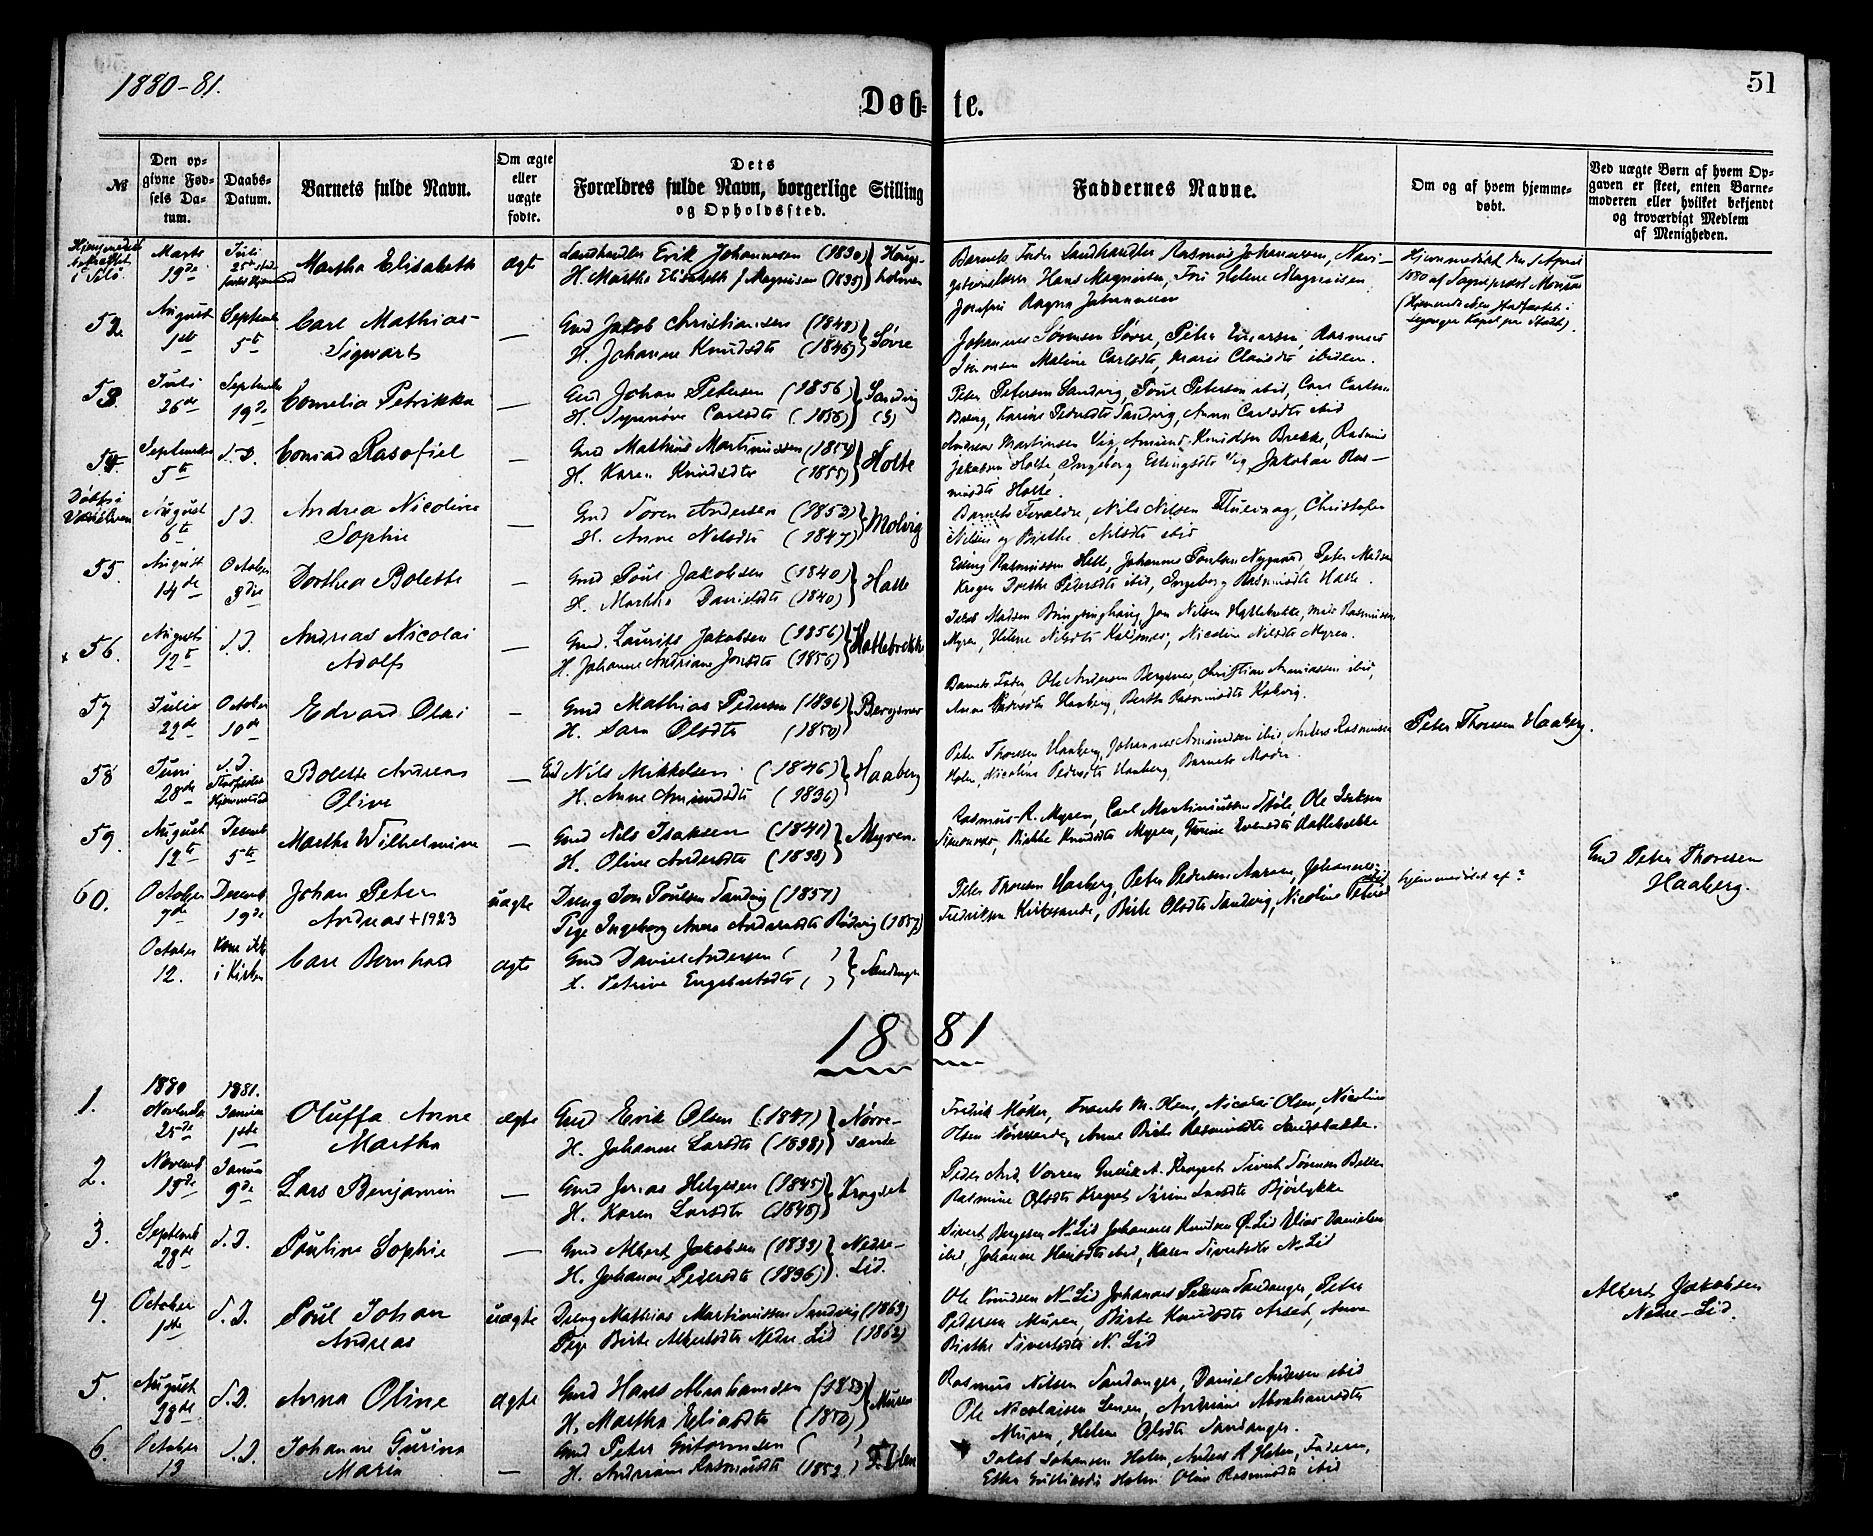 1880-81.
51
Døb- te.
№
Den op-
givne Fød-
sels Da-
tum.
Daabs-
Datum.
Barnets fulde Navn.
Om ægte
eller
uægte
fødte.
Dets
Forældres fulde Navn, borgerlige Stilling
og Opholdssted.
Faddernes Navne.
Om og af hvem hjemme-
døbt.
Ved uægte Børn af hvem Op-
gaven er skeet, enten Barne-
moderen eller hvilket bekjendt
og troværdigt Medlem
af Menigheden.
Marts
19de
Juli
25
Martha Elisabeth
ægte
Landhandler Erik Johannsen (1830)
H. Martha Elisabeth f. Magnusen (1835)
Barnets Fader Landhandler Rasmus Johannesen, Navi-
Hans Magnusen, Fru Helene Magnusen
Josefine Ragna Johannesen
Hjemmedøbt
1880 af Sogneprest
52
August
1ste
Septemb
5te
Carl Mathias
Sigvart
—
Gmd Jakob Christiansen (1848)
H. Johanne Knudsdtr (1846)
Sørre
Johannes Sørensen Sørre, Peter Einarsen, Rasmus
Simonsen Maline Carlsdtr, Marie Clausdtr ibidem.
53
Juli
26de
Septembr
19de
Cornelia Petrikka
—
Gmd Johan Petersen (1856)
H. Synnøve Carlsdtr (1856)
Sandvig
Peter Petersen Sandvig, Poul Petersen ibid, Carl Carlsen
Berg, Karine Pedersdtr Sandvig, Anna Carlsdtr ibid
54
September
5te
S.D.
Conrad Rasofiel
—
Gmd Mathias Martinussen (1854)
H. Karen Knudsdtr (1855)
Holte
Andreas Martinsen Vig, Amund Knudsen Brekke, Rasmus
Jakobsen Holte, Ingeborg Ellingsdtr Vig, Jakobine Ras-
musdtr Holte.
August
6te
S.D.
Andrea Nicoline
Sophie
—
Gmd Søren Andersen (1853)
H. Anne Nilsdtr (1847)
Molvig
Barnets Forældre, Nils Nilsen Thuevaag, Christofer
Nilsen og Birthe Nilsdtr ibid
55.
August
14de
October
3die
Dorthea Bolette
—
Gmd Poul Jakobsen (1840)
H. Martha Danielsdtr (1840)
Halse
Elling Rasmussen Halse, Johannes Poulsen Nygaard, Peter Madsen
Krogen Dorthe Pedersdtr ibid, Ingeborg Rasmusdtr Halse.
56.
August
12te
S.D.
Andreas Nicolai
Adolf
—
Gmd. Laurits Jakobsen (1856)
H. Johanne Andriane Jonsdtr (1856)
Hatlebrekke
Jakob Madsen Bringsinghaug, Jon Nilsen Hatlebrekke, Rasmussen
Myren, Helene Nilsdtr, Nicoline Nilsdtr Myren.
57
Julio
29de
October
10de
Edvard Olai
—
Gmd Mathias Pedersen (1836)
H. Sara Olsdtr (1850)
Bergsnes
Barnets Fader, Ole Andersen Bergsnes, Christian Ananiassen ibid,
Anne Pedersdtr Haaberg, Berthe Rasmusdtr Kobvig.
58
Juni
28de
S.D.
Bolette Andrea
Olive
—
Gmd Nils Mikkelsen (1846)
H. Anne Amundsdtr (1836)
Haaberg
Peter Thoresen Haaberg, Johannes Amundsen ibid, Anders Rasmussen
Holen, Nicoline Pedersdtr Haaberg, Barnets Moder.
Peter Thoresen Haaberg.
59.
August
12te
Decemb
5te
Martha Wilhelmine
—
Gmd Nils Isaksen (1841)
H. Oline Andersdtr (1838)
Myren.
Rasmus R. Myren, Carl Martinussen Støle, Ole Isaksen
Birthe Knudsdtr Myren, Gurine Evensdtr Hatlebrekke
60.
October
7de
Decemb
19de
Johan Peter
Andreas +1923
uægte
Dreng Jon Poulsen Sandvig (1857)
Pige Ingeborg Anna Andersdtr Rødvig (1857)
Peter Thoresen Haaberg, Peter Pedersen Aaram, Johannes
Fredriksen Kirkesande, Birte Olsdtr Sandvig, Nicoline Petersd
hjemmedøbt af?
Gmd Peter Thoresen
Haaberg.
October
12.
kom ikke
i Kirken
Carl Bernhard
ægte
Gmd Daniel Andersen ( )
H. Petrine Engebretsdtr ( )
Sandanger
1881
1.
1880
Novemb
25de
1881.
Januar
1ste
Oluffa Anne
Martha
ægte
Gmd Erik Olsen (1847)
H. Johanne Larsdtr (1838)
Nørre-
sande
Fredrik Møller, Frants M. Hom, Nicolai Olsen, Nicoline
Olsen Nørresande, Anne Birte Rasmusdtr
2.
Novemb
15de
Januar
9de
Lars Benjamin
—
Gmd Jonas Helgesen (1845)
H. Karen Larsdtr (1848)
Krogset
Peder And. Vorren Gullik A. Krogset Sivert Sørensen
Rasmine Olsdtr Krogset Sørine Larsdtr Bjørlykke
3.
Septemb
28de
S.D.
Pauline Sophie
—
Gmd Albert Jakobsen (1833)
H. Johanne Pedersdtr (1836)
Nedre-
Lid.
Sivert Bergesen N.Lid Johannes Knudsen Ø.Lid Elias Danielsen
ibid, Johanne Hansdtr ibid, Karen Sivertsdtr N.Lid
4.
October
1ste
S.D.
Poul Johan
Andreas
uægte
Dreng Mathias Martinussen Sandvig (1863)
Pige Birte Albertsdtr Nedre Lid (1862)
Ole Knudsen N.Lid Johannes Petersen Sandanger, Peter
Pedersen Muren, Birte Knudsdtr Arset, Anne
Birthe Sivertsdtr N.Lid
Albert Jakobsen
Nedre-Lid.
5.
August
28de
S.D.
Anna Oline
ægte
Gmd Hans Abrahamsen (1853)
H. Martha Eliasdtr (1850)
Muren
Rasmus Nilsen Sandanger, Daniel Andersen ibid
Ole Nicolaisen Lenen, Andrine Abrahamsdtr
Muren, Helene Olsdtr Sandanger.
6.
October
13
S.D.
Johanne Gurina
Maria
—
Gmd Peter Guttormsen ( )
H. Andriane Rasmusdtr (1852)
Jakob Johansen Holen, Anders R Holen, Faderen,
Holen Oline Rasmusdtr ibid